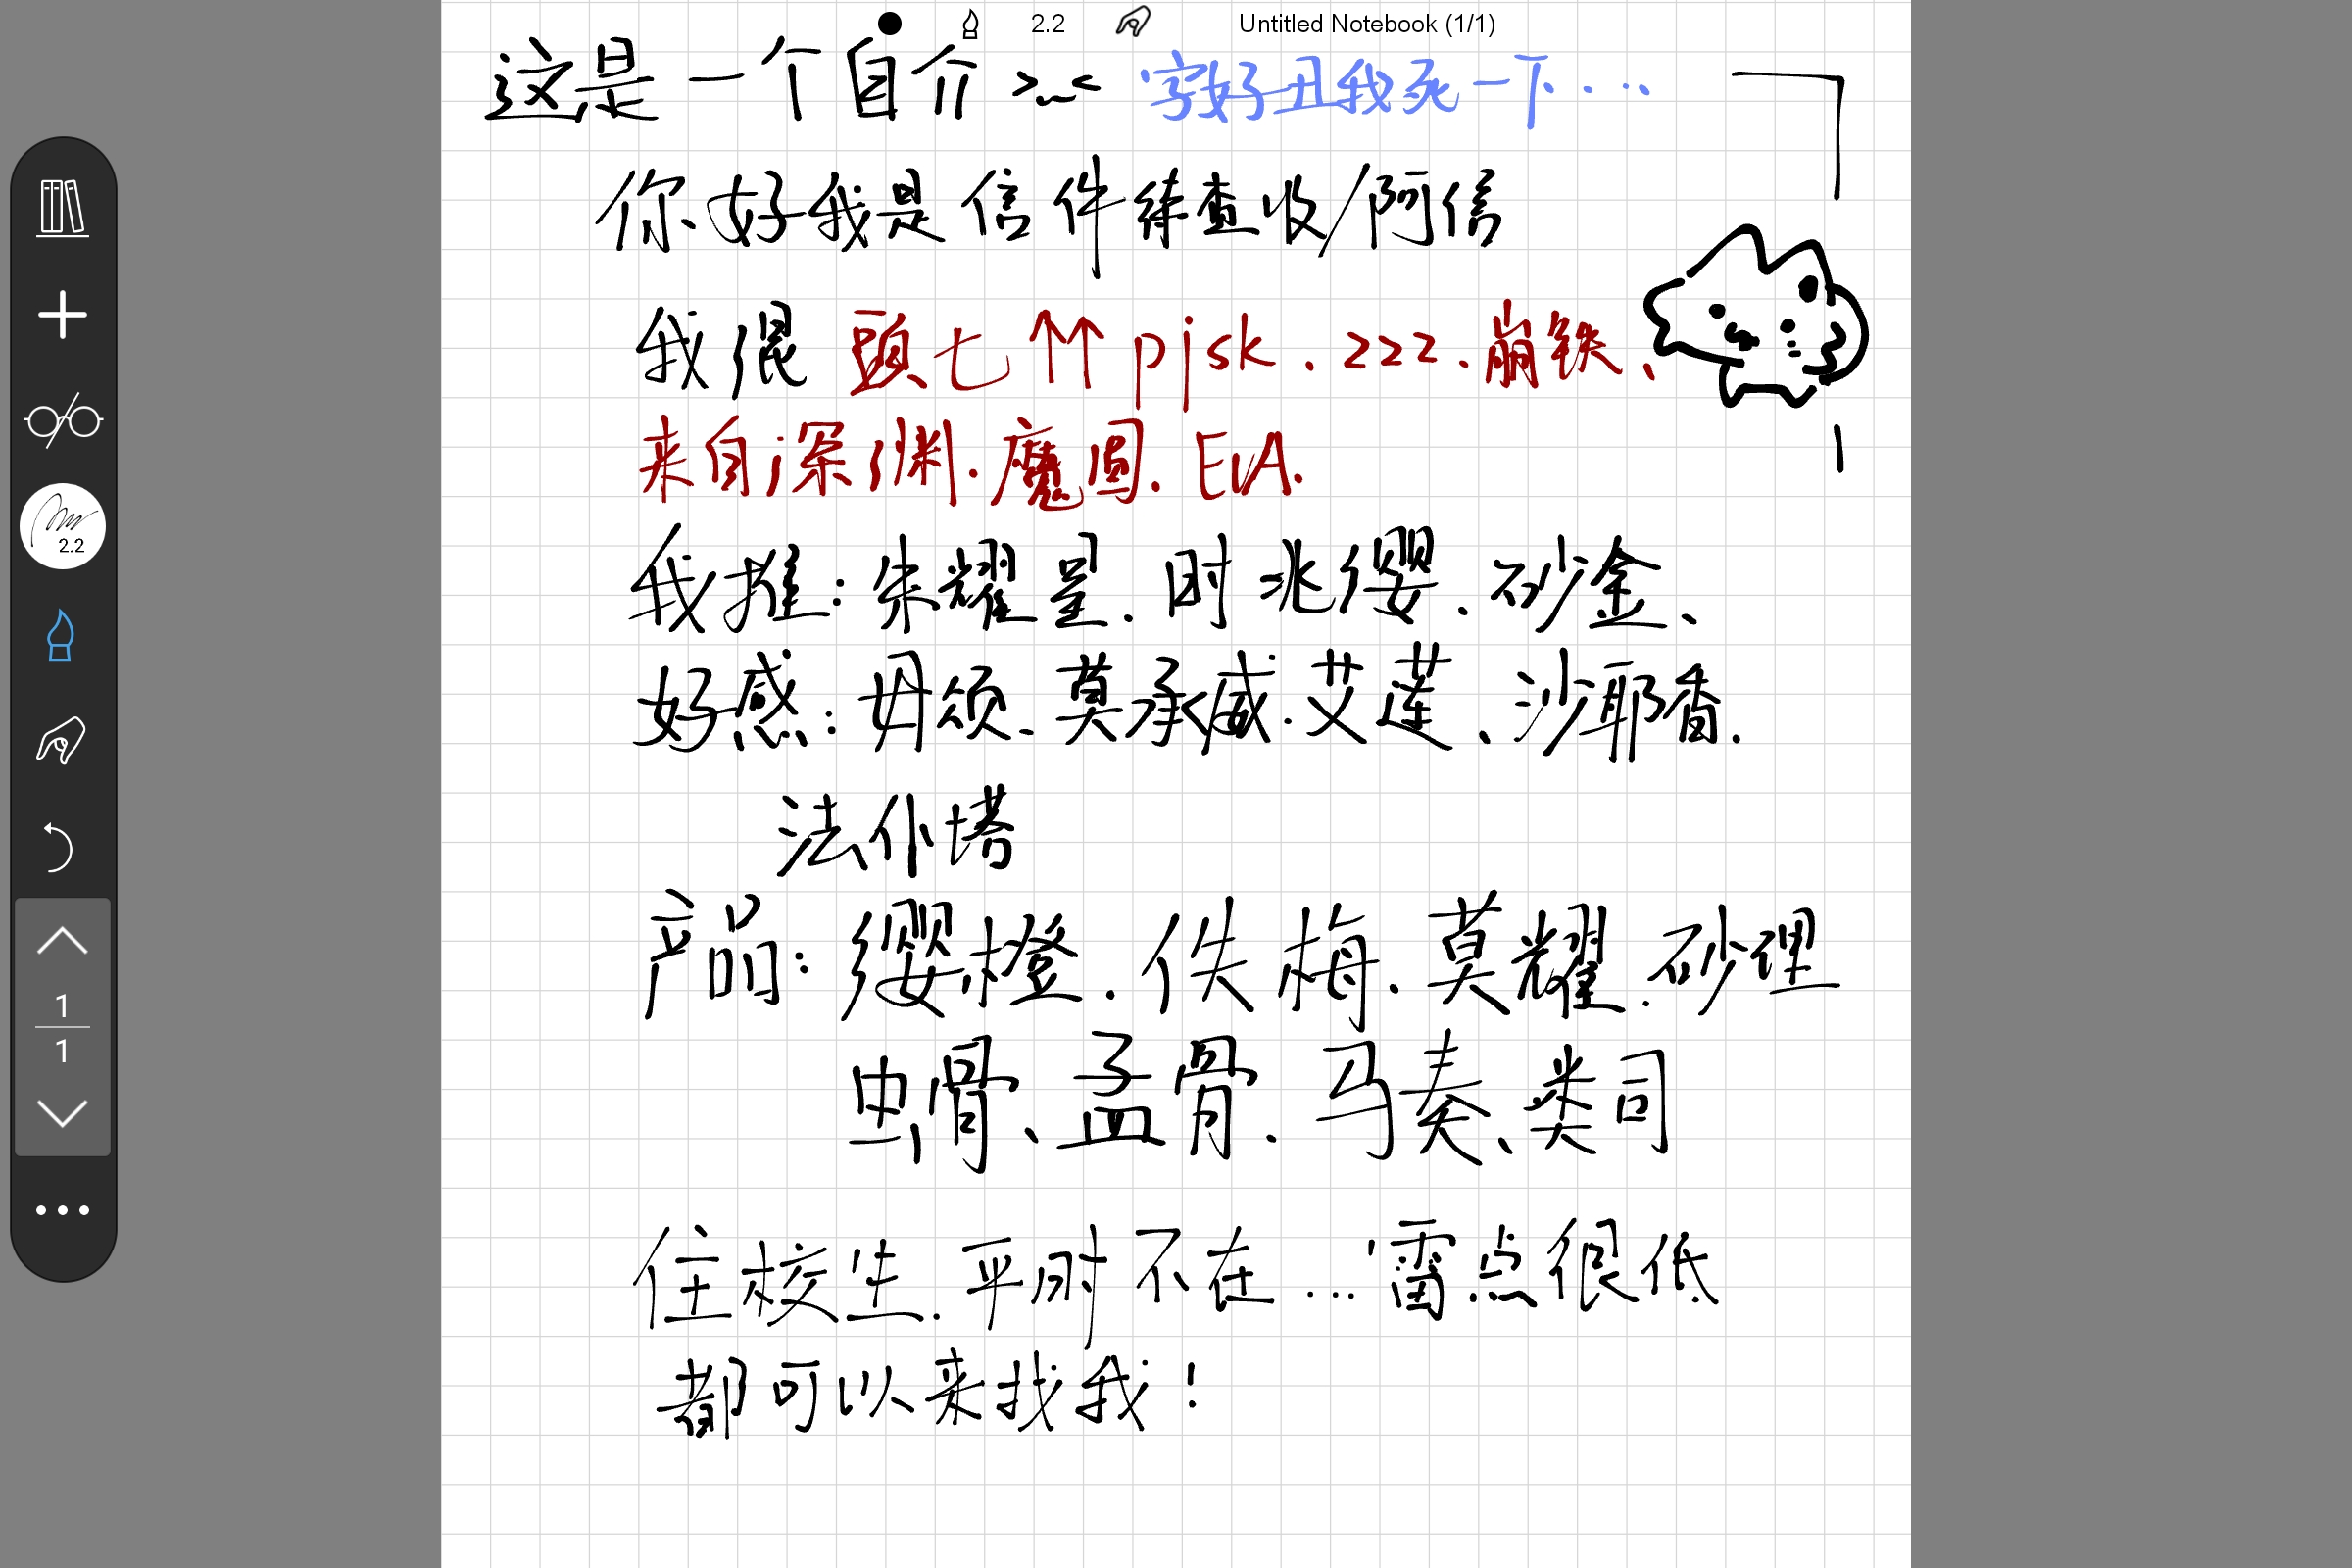 2.2 Untitled Notebook (1/1)
这是一个自介 >~< 字好丑我死一下....
你好我是信件待查收/阿信
我很 头七↑↑ pjsk.zzz.崩铁、
来自深渊.魔圆.EVA.
2.2
我推:朱耀星.时兆缨.砂金、
好感:丹颂、莫承诚.艾莲、沙耶香.
法仆塔
产品:缨橙.佚梅.莫耀.砂理
虫骨、孟骨、马奏、类司
1
1
住校生.平时不在...雷点很低
都可以来找我!